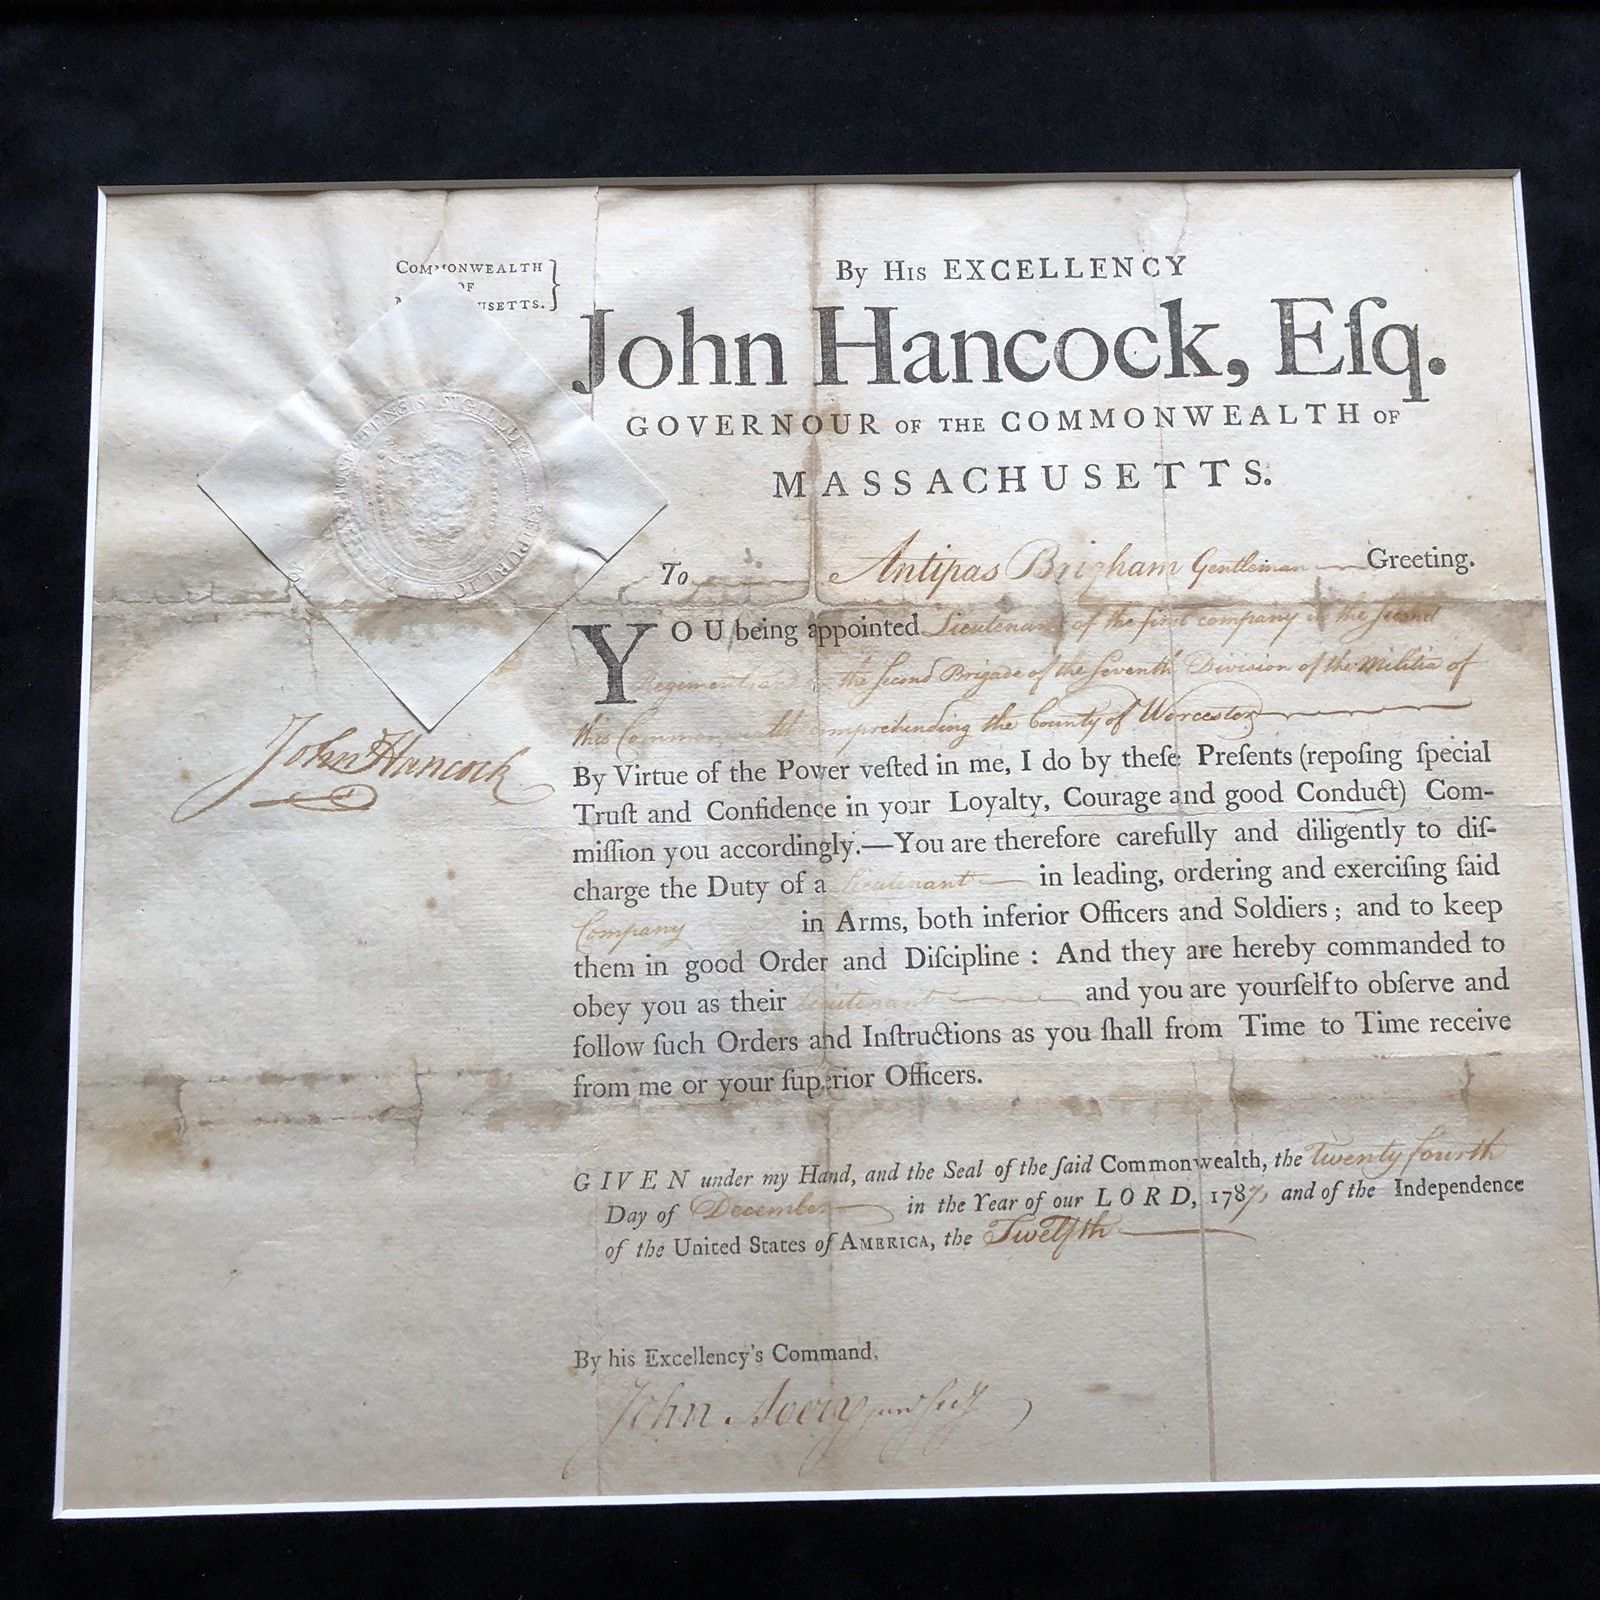 COMMONWEALTH
OF
USETTS.
By His EXCELLENCY
John Hancock, Eſq.
GOVERNOUR OF THE COMMONWEALTH OF
MASSACHUSETTS.
SIGILLUM REIPUBLICÆ
To Antipas Brigham Gentleman Greeting.
YOU being appointed Lieutenant of the first company in the Second
Regiment in the Second Brigade of the Seventh Division of the Militia of
this Commonwealth comprehending the County of Worcester
John Hancock
By Virtue of the Power veſted in me, I do by theſe Preſents (repoſing ſpecial
Truſt and Confidence in your Loyalty, Courage and good Conduct) Com-
miſſion you accordingly.—You are therefore carefully and diligently to diſ-
charge the Duty of a Lieutenant in leading, ordering and exerciſing ſaid
Company in Arms, both inferior Officers and Soldiers; and to keep
them in good Order and Diſcipline: And they are hereby commanded to
obey you as their Lieutenant and you are yourſelf to obſerve and
follow ſuch Orders and Inſtructions as you ſhall from Time to Time receive
from me or your ſuperior Officers.
GIVEN under my Hand, and the Seal of the ſaid Commonwealth, the Twenty fourth
Day of December in the Year of our LORD, 1787, and of the Independence
of the United States of AMERICA, the Twelfth
By his Excellency's Command,
John Avery jun Secy